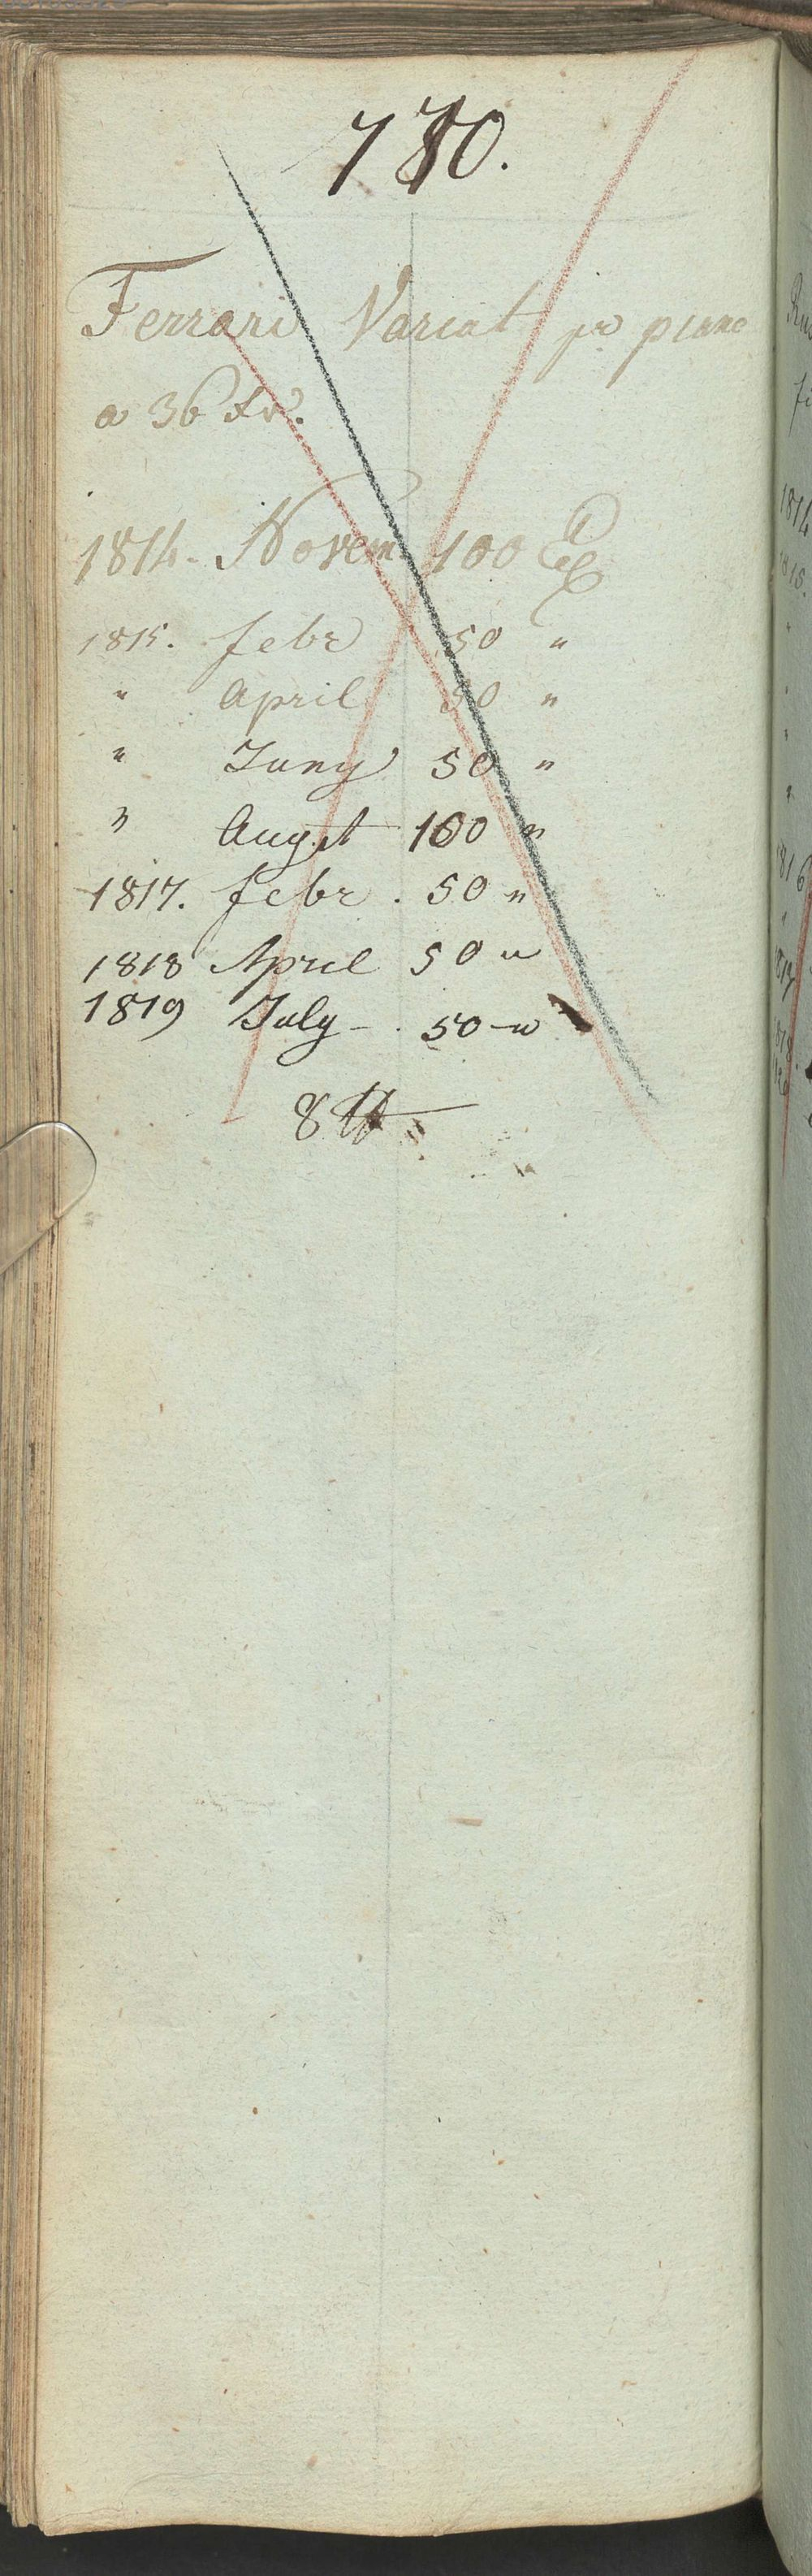 780.
Ferrari Variat pr piano
a 36 Xr.
1814. Novem 100 Ex
1815. febr 50 "
" April 50 "
" Juny 50 "
" Augst 100 "
1817. febr. 50 "
1818 April 50 "
1819 July - . 50 - "
8 ℔